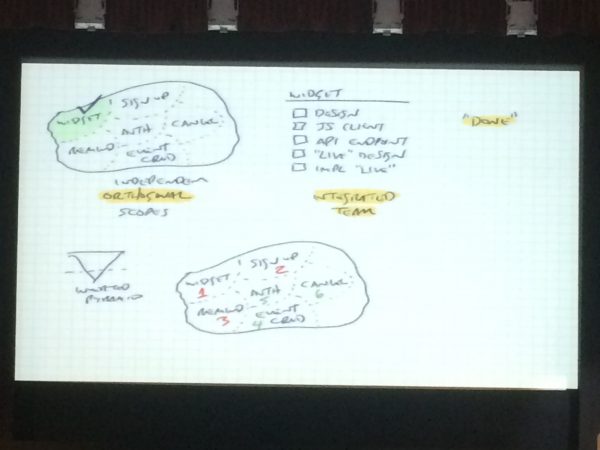 SIGN UP
WIDGET
AUTH
CANCEL
REMIND
EVENT
CRUD
INDEPENDENT
ORTHOGONAL
SCOPES
WIDGET
DESIGN
JS CLIENT
API ENDPOINT
"LIVE" DESIGN
IMPL "LIVE"
INTEGRATED
TEAM
"DONE"
INVERTED
PYRAMID
SIGN UP
2
WIDGET
1
AUTH
5
CANCEL
6
REMIND
3
EVENT
4 CRUD